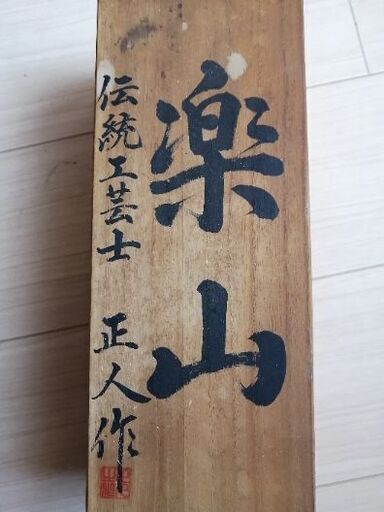 楽山
伝統工芸士 正人作